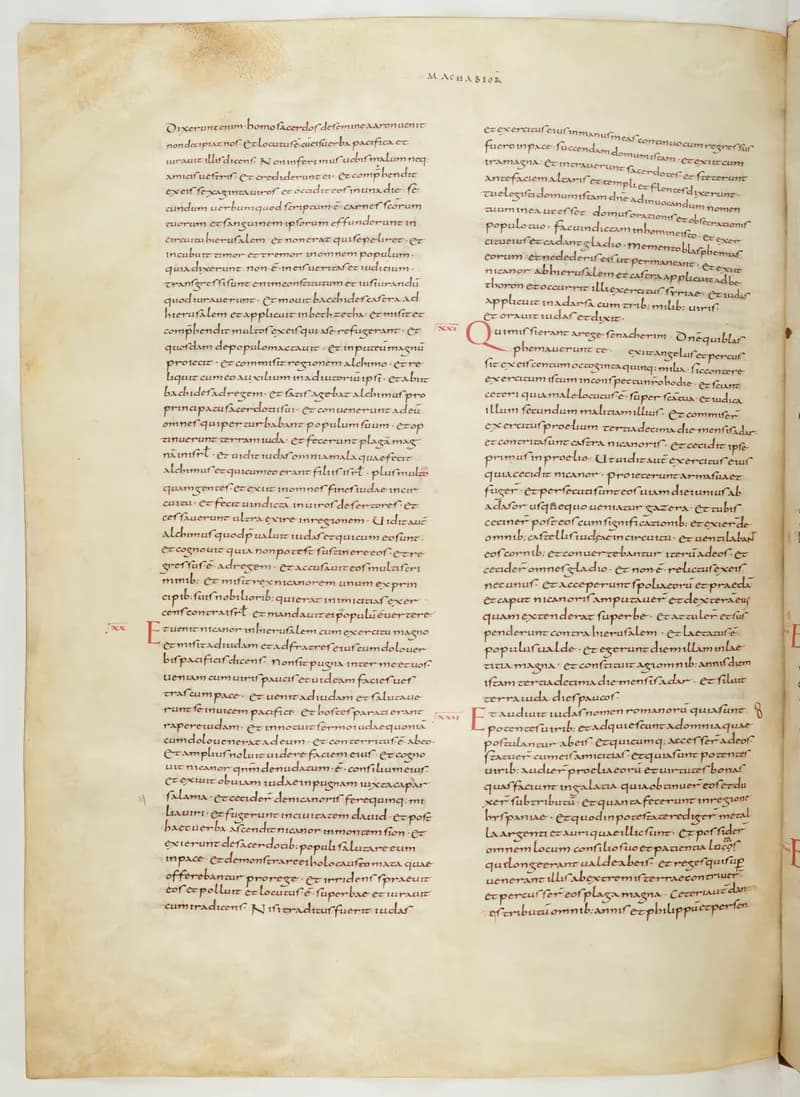 MACHABIOR̄
Dixerunt enim homo sacerdos de semine aaron uenit
non decipiet nos. Et locutus ē cū eis uerba pacifica et
iurauit illis dicens. Non inferimus uobis malum neq;
amicis uestris. Et crediderunt ei. Et comphendit
ex eis sexaginta uiros et occidit eos in una die. se
cundum uerbum quod scriptum ē carnes scōrum
tuorum et sanguinem ipsorum effunderunt in
circuitu hierusalem et non erat qui sepeliret. Et
incubuit timor et tremor in omnem populum.
quia dixerunt. non ē in eis ueritas et iudicium.
transgressi sunt enim constitutum et iusiurandū
quod iurauerunt. Et mouit bacchides castra ad
hierusalem et applicuit in bethzetha. Et misit et
comphendit multos ex eis qui a se refugerant. Et
quosdam de populo mactauit. Et in puteū magnū
proiecit. Et commisit regionem alchimo. Et re
liquit cum eo auxilium in adiutoriū ipsi. Et abiit
bachides ad regem. Et satis agebat alchimus pro
principatu sacerdotii sui. Et conuenerunt ad eū
omnes qui perturbabant populum suum. Et op
tinuerunt terram iuda. Et fecerunt plagā mag
nā in isrł. Et uidit iudas omnia mala quae fecit
alchimus et qui cum eo erant filiis isrł. plus multo
quam gentes. Et exiit in omnes fines iudae in cir
cuitu. Et fecit uindictā in uiros desertores. Et
cessauerunt ultra exire in regionem. Uidit aut̄
alchimus quod p̄ualuit iudas et qui cum eo sunt.
et cognouit quia non potest sustinere eos. Et re
gressus ē ad regem. Et accusauit eos multis cri
minib; Et misit rex nicanorem unum ex prin
cipib; suis nobiliorib; qui erat inimicitias exer
cens contra isrł. Et mandauit ei populū euertere
XX
Et uenit nicanor in hierusalem cum exercitu magno
et misit ad iudam et ad fratres eius cum dolo uer
bis pacificis dicens. Non sit pugna inter me et uos
ueniam cum uiris paucis et uideam facies ues
tras cum pace. Et uenit ad iudam et salutaue
runt se inuicem pacifice. Et hostes parati erant
rapere iudam. Et innotuit sermo iudae quoniā
cum dolo uenerat ad eum. Et conterritus ē ab eo.
Et amplius noluit uidere faciem eius. Et cogno
uit nicanor qnm̄ denudatum. ē. consilium eius.
Et exiuit obuiam iudae in pugnam iuxta capar
salama. Et cecider̄ de nicanoris fere quinq; mi
lia uiri. Et fugerunt in ciuitatem dauid. Et post
haec uerba ascendit nicanor in montem sion. Et
exierunt de sacerdotib; populi salutare eum
in pace. Et demonstrare ei holocaustomata quae
offerebantur pro rege. Et irridens spraeuit
eos et polluit et locutus ē superbae et iurauit
cum ira dicens. Nisi traditus fuerit iudas
et exercitus eius in manus meas continuo cum regressus
fuero in pace. succendam domum istam. Et exiit cum
ira magna. Et intrauerunt sacerdotes et steterunt
ante faciem altaris et templi et flentes dixerunt.
tu elegisti domum istam dn̄e ad inuocandum nomen
tuum in ea ut esset domus orationis et obsecrationis
populo tuo. fac uindictam in homine isto. et exer
citu eius et cadant gladio. memento blasphemias
eorum. et ne dederis eis ut permaneant. Et exiit
nicanor ab hierusalem et castra applicuit ad be
thoron et occurrit illi exercitus syriae. Et iudas
applicuit in adarsa cum trib; milib; uiris
et orauit iudas et dixit.
XXI
Qui missi erant a rege senacherim. Dn̄e qui blas
phemauerunt te. exiit angelus et percus
sit ex eis centum octoginta quinq; milia. sic contere
exercitum istum in conspectu nr̄o hodie. Et sciant
ceteri quia male locutus ē super scā tua. et iudica
illum secundum malitiam illius. Et commiser̄
exercitus proelium tertia decima die mensis adar.
et contrita sunt castra nicanoris. Et cecidit ipse
primus in proelio. Ut uidit aut̄ exercitus eius
quia cecidit nicanor. proiecerunt arma sua et
fuger̄. Et persecuti sunt eos uiam diei unius ab
adasor usq; quo ueniatur gazera. Et tubis
ceciner̄ post eos cum significationib; et exier̄ de
omnib; castellis iudaeae in circuitu. Et uentilabant
eos cornib; et conuertebantur iterū ad eos. Et
cecider̄ omnes gladio. Et non ē relictus ex eis
nec unus. Et acceperunt spolia eorū et praedā
Et caput nicanoris amputauer̄ et dexterā eius
quam extenderat superbe. Et attuler̄ et sus
penderunt contra hierusalem. Et laetatus ē
populus ualde. Et egerunt diem illam in lae
titia magna. Et constituit agi omnib; annis diem
istam tertia decima die mensis adar. Et siluit
terra iuda dies paucos.
XXII
Et audiuit iudas nomen romanorū quia sunt
potentes uirib; et adquiescunt ad omnia quae
postulantur ab eis. Et quicumq; accesser̄ ad eos
statuer̄ cum eis amicitias. et quia sunt potentes
uirib; audier̄ proelia eorū et uirtutes bonas
quas faciunt in galatia quia obtinuer̄ eos et du
xer̄ sub tributū. Et quanta fecerunt in regione
hispaniae. Et quod in potestate redigier̄ metal
la argenti et auri quae illic sunt. Et posseder̄
omnem locum consilio suo et patientia locos
qui longe erant ualde ab eis. Et reges qui sup̄
uenerant illis ab extremis terrae contriuer̄
et percusser̄ eos plaga magna. Ceteri aut̄ dan
es tributū omnib; annis et philippū et persen